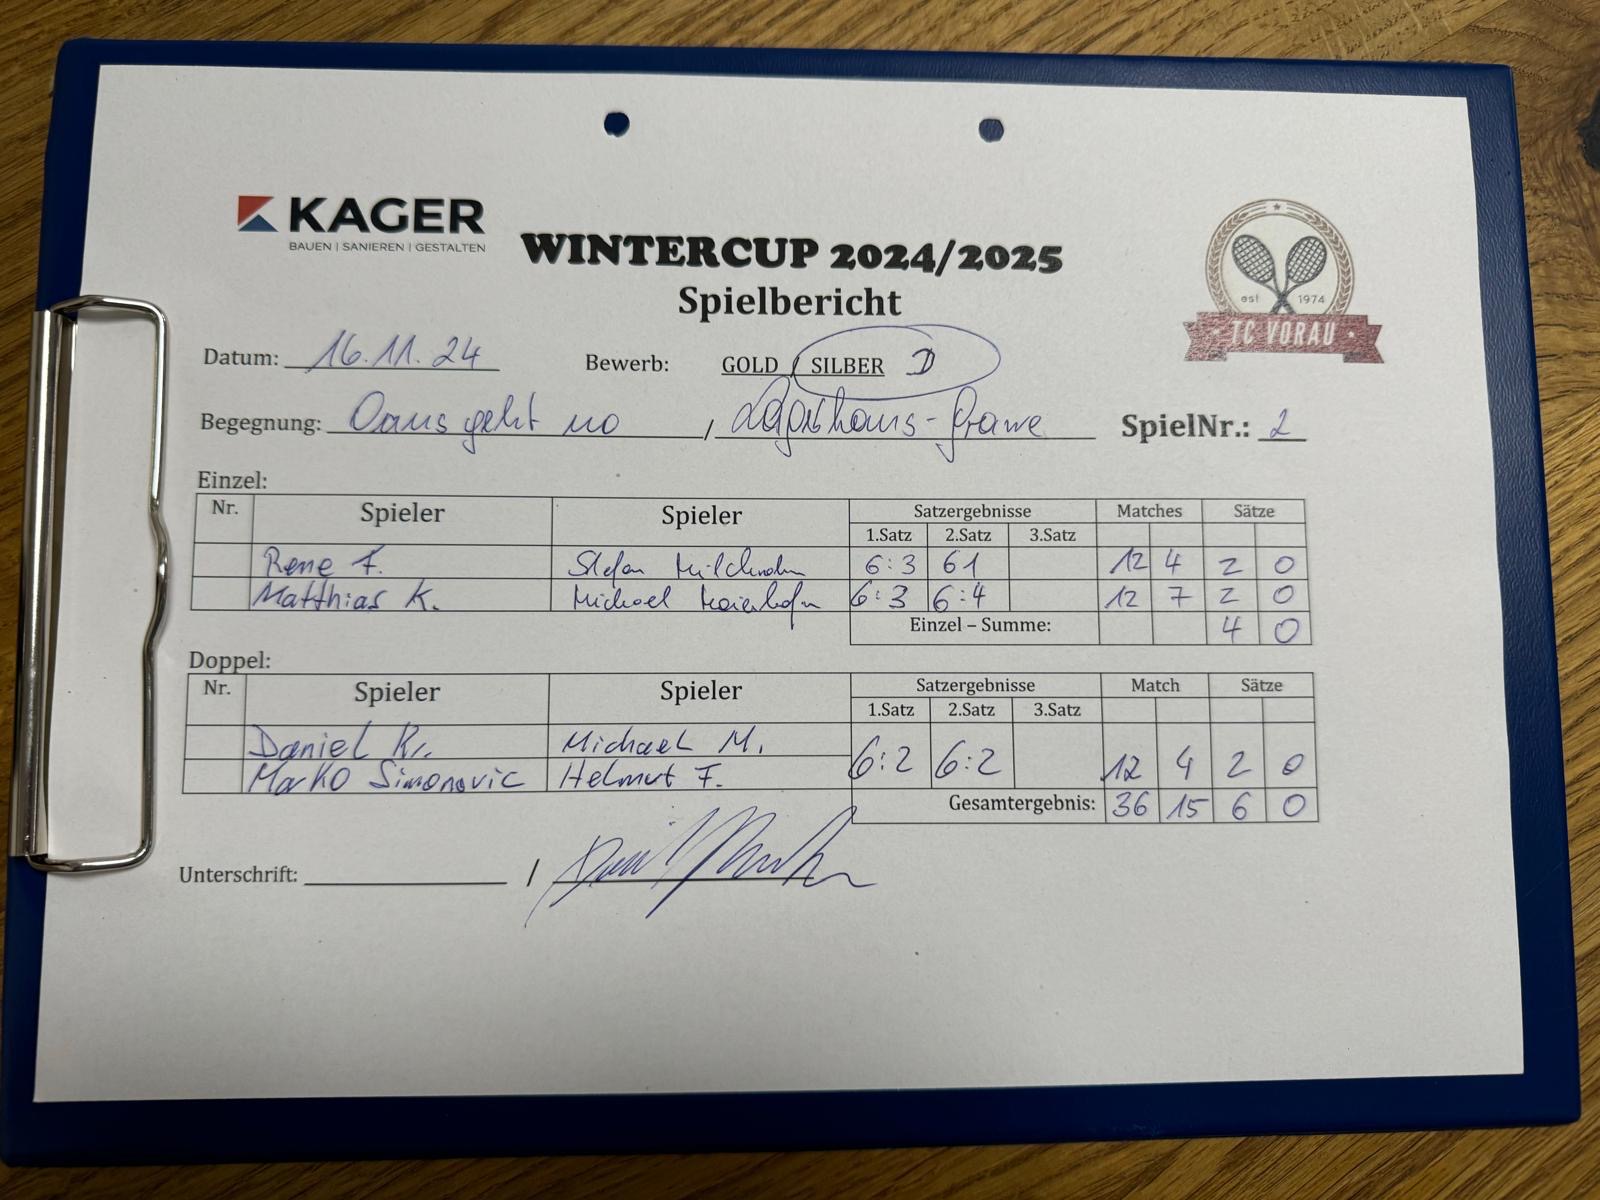 KAGER
BAUEN | SANIEREN | GESTALTEN
WINTERCUP 2024/2025
Spielbericht
est 1974
TC VORAU
Datum: 16.11.24 Bewerb: GOLD / SILBER D
Begegnung: Oans geht no / Lagerhaus-Grawe SpielNr.: 2
Einzel:
Nr. Spieler Spieler Satzergebnisse Matches Sätze
1.Satz 2.Satz 3.Satz
Rene F. Stefan 6:3 61 12 4 2 0
Matthias K. Michael Maierhofer 6:3 6:4 12 7 2 0
Einzel – Summe: 4 0
Doppel:
Nr. Spieler Spieler Satzergebnisse Match Sätze
1.Satz 2.Satz 3.Satz
Daniel Kr. Michael M. 6:2 6:2 12 4 2 0
Marko Simonovic Helmut F.
Gesamtergebnis: 36 15 6 0
Unterschrift: /